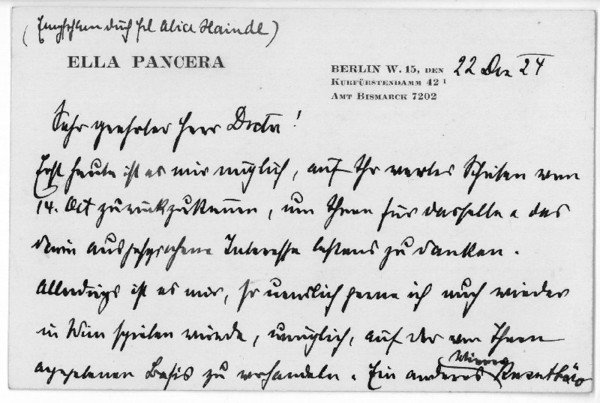 (Empfohlen durch Frl Alice Haindl)
ELLA PANCERA
BERLIN W. 15, DEN 22 Dez 24
KURFÜRSTENDAMM 42 I
AMT BISMARCK 7202
Sehr geehrter Herr Doctor!
Erst heute ist es mir möglich, auf Ihr wertes Schreiben vom
14. Oct zurückzukommen, um Ihnen für dasselbe & das
darin ausgesprochene Interesse bestens zu danken.
Allerdings ist es mir, so gerne ich auch wieder
in Wien spielen würde, unmöglich, auf der von Ihnen
angegebenen Basis zu verhandeln. Ein anderes Wiener